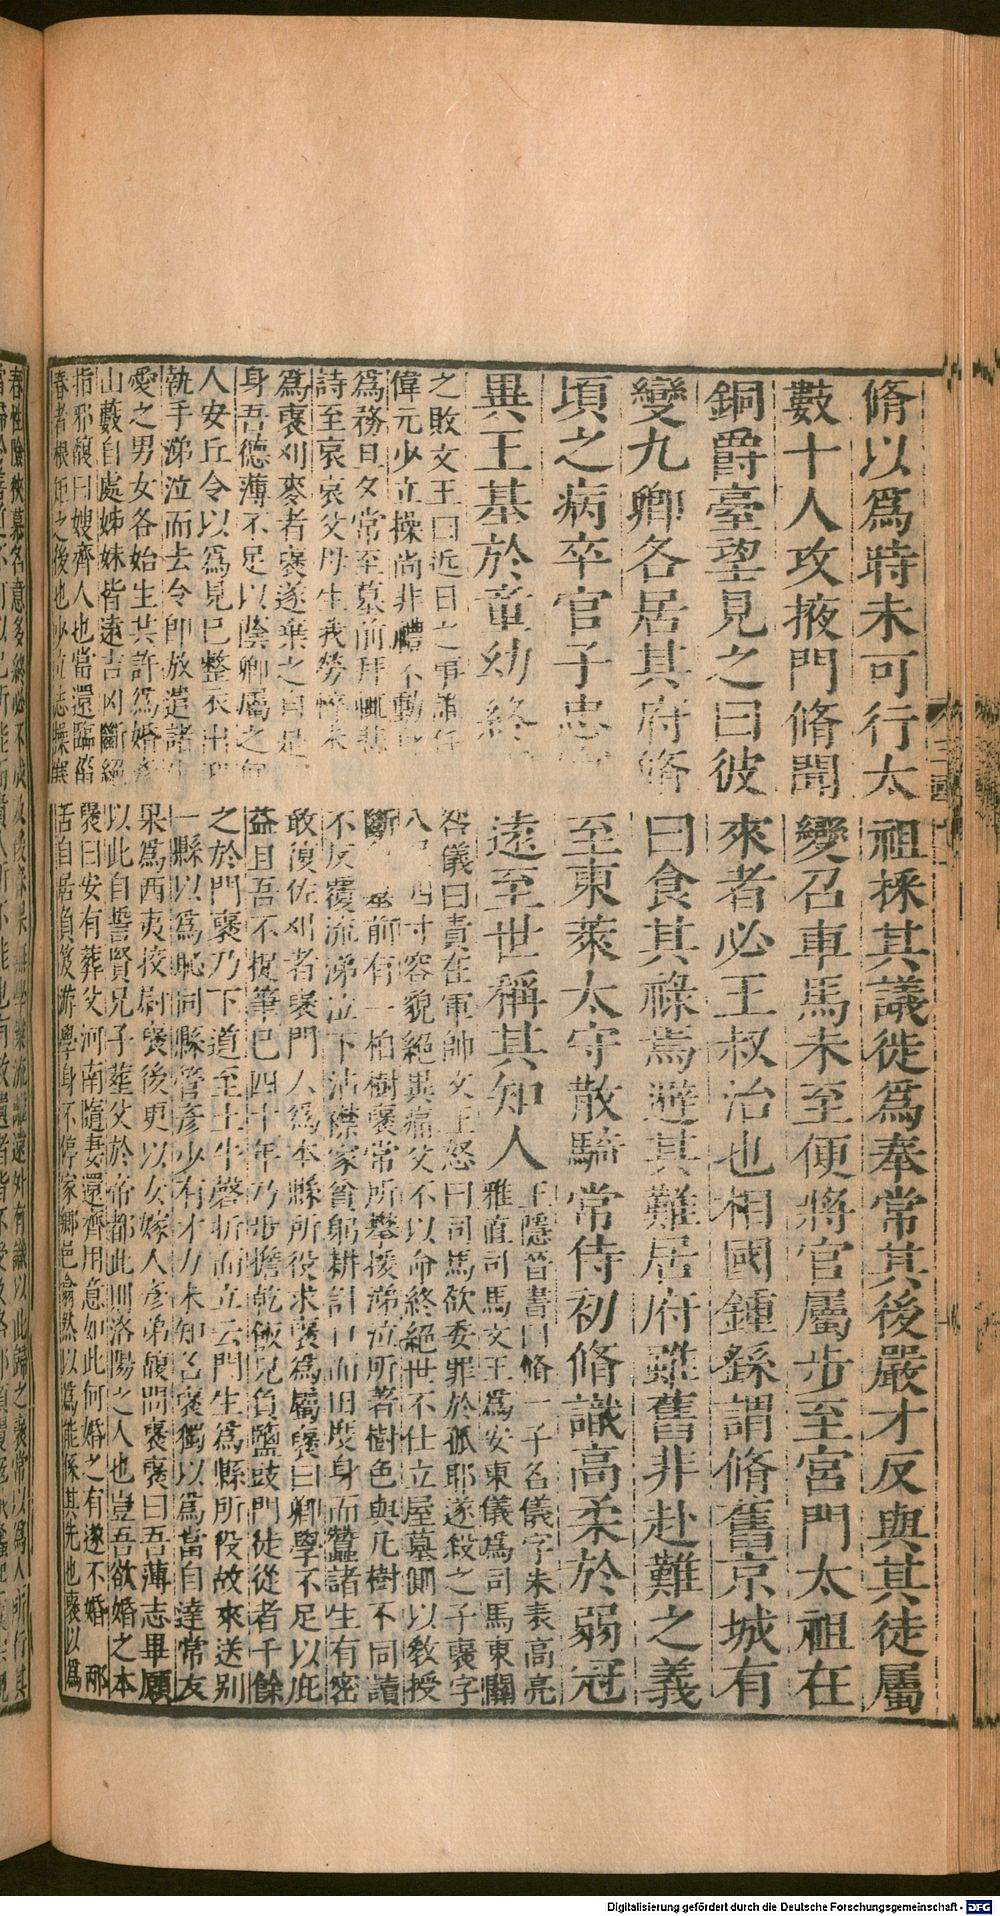 脩以爲時未可行太祖採其議徙爲奉常其後嚴才反與其徒屬
數十人攻掖門脩聞變召車馬未至便將官屬步至宮門太祖在
銅爵臺望見之曰彼來者必王叔治也相國鍾繇謂脩舊京城有
變九卿各居其府脩曰食其祿焉避其難居府雖舊非赴難之義
頃之病卒官子忠至東萊太守散騎常侍初脩識高柔於弱冠
異王基於童幼終遠至世稱其知人
王隱晉書曰脩一子名儀字朱表高亮
雅直司馬文王爲安東儀爲司馬東關
之敗文王曰近日之事誰任咎儀曰責在軍帥文王怒曰司馬欲委罪於孤耶遂殺之子裒字
偉元少立操尚非禮不動八四寸容貌絕異痛父不以命終絕世不仕立屋墓側以教授
爲務旦夕常至墓前拜輒悲斷墓前有一柏樹裒常所攀援涕泣所著樹色與凡樹不同讀
詩至哀哀父母生我勞悴未不反覆流涕泣下沾襟家貧躬耕計口而田度身而蠶諸生有密
爲裒刈麥者裒遂棄之自是敢復佐刈者裒門人爲本縣所役求裒爲屬裒曰卿學不足以庇
身吾德薄不足以蔭卿屬之何益且吾不捉筆已四十年乃步擔乾飯兒負鹽豉門徒從者千餘
人安丘令以爲見已整衣出迎之於門裒乃下道至土牛磬折而立云門生爲縣所役故來送别
執手涕泣而去令即放遣諸生一縣以爲恥同縣管彥少有才力未知名裒獨以爲當自達常友
愛之男女各始生共許爲婚彥果爲西夷校尉裒後更以女嫁人彥弟馥問裒裒曰吾薄志畢願
山藪自處姊妹皆遠吉凶斷絕以此自誓賢兄子葬父於帝都此則洛陽之人也豈吾欲婚之本
指邪馥曰嫂齊人也當還臨菑裒曰安有葬父河南隨妻還齊用意如此何婚之有遂不婚 邴
春者根矩之後也少立志操寒苦自居負笈游學身不停家鄉邑翕然以爲能係其先也裒以爲
春性險狹慕名意多終必不成及後春果無學業流離遠外有識以此歸之裒常以爲人所行其
Digitalisierung gefördert durch die Deutsche Forschungsgemeinschaft - DFG